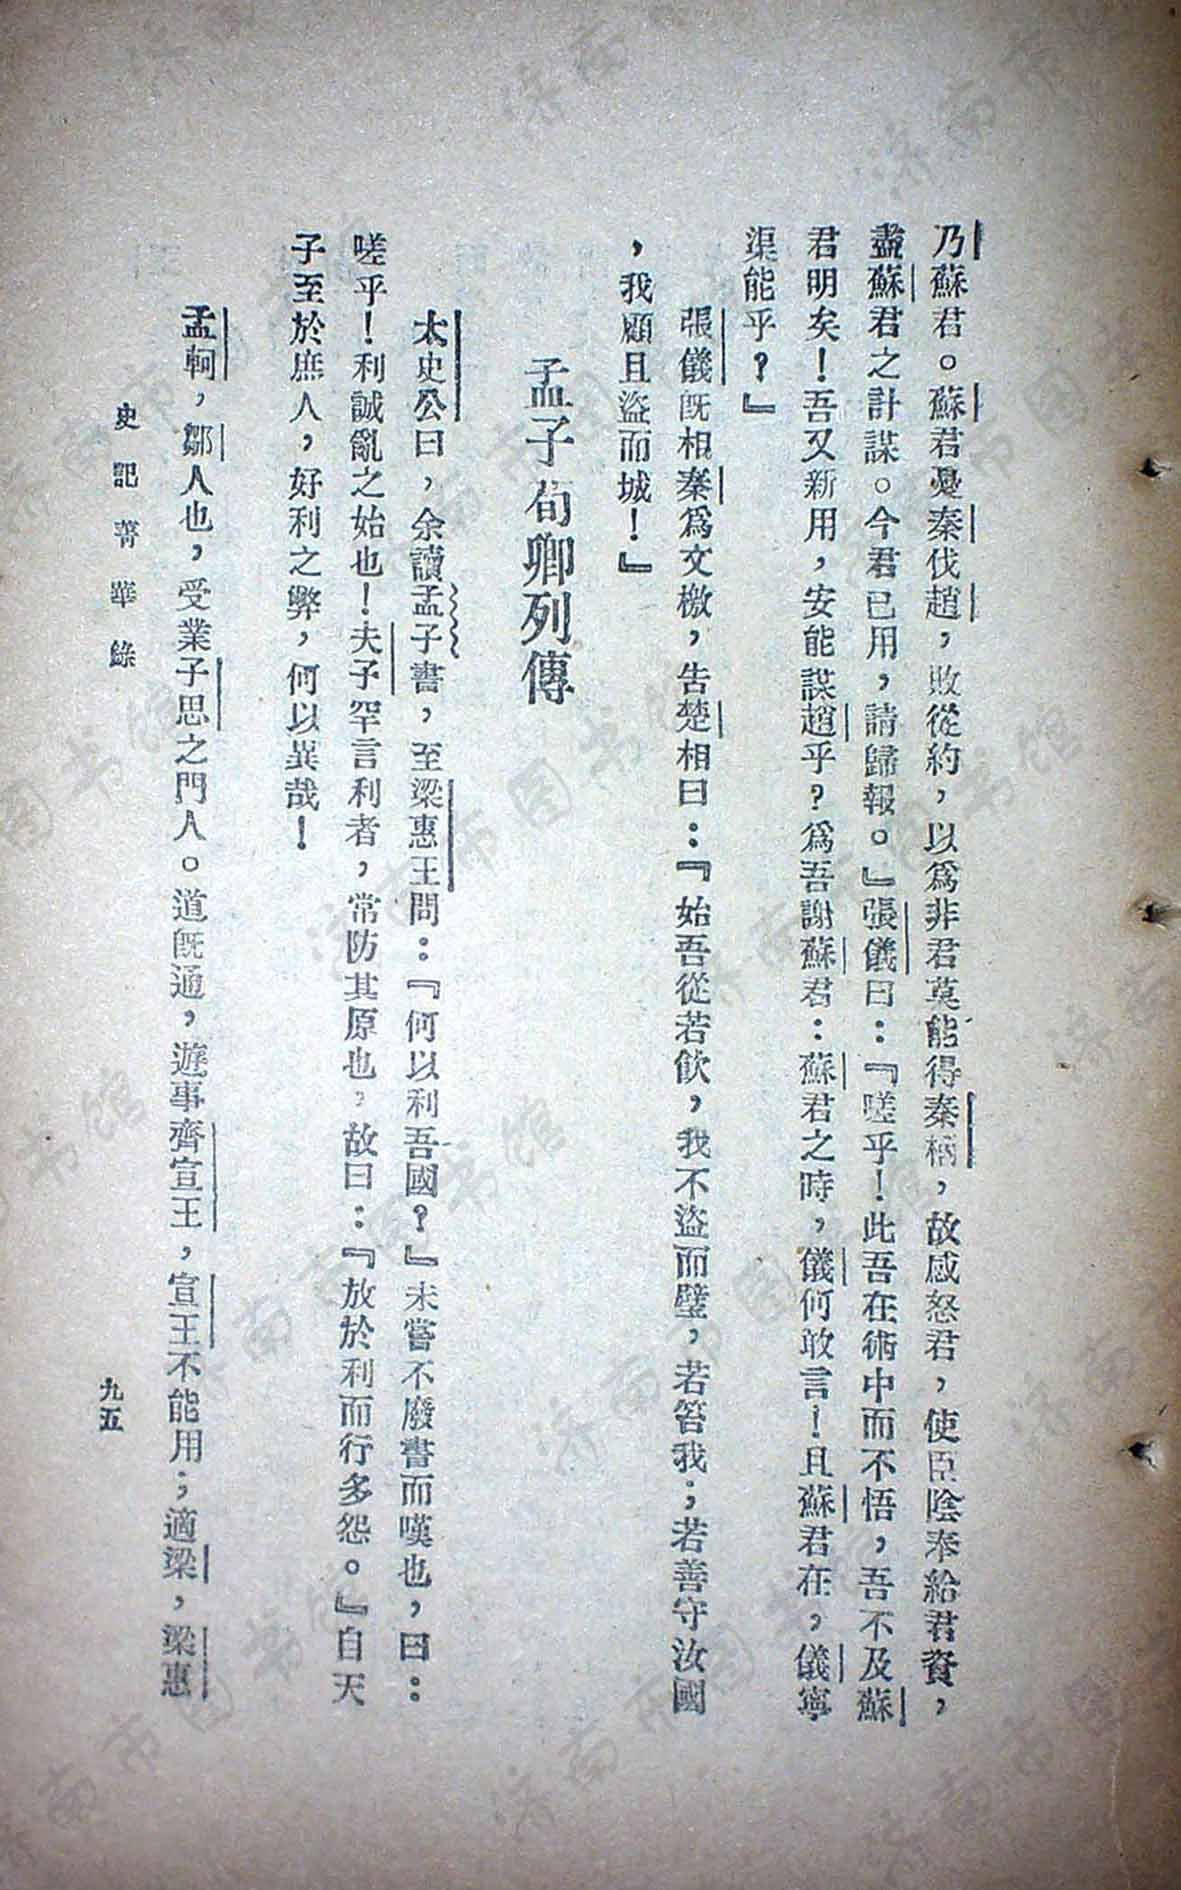 乃蘇君。蘇君憂秦伐趙，敗從約，以爲非君莫能得秦柄，故感怒君，使臣陰奉給君資，
盡蘇君之計謀。今君已用，請歸報。』張儀曰：『嗟乎！此吾在術中而不悟，吾不及蘇
君明矣！吾又新用，安能謀趙乎？爲吾謝蘇君：蘇君之時，儀何敢言！且蘇君在，儀寧
渠能乎？』
張儀旣相秦爲文檄，告楚相曰：『始吾從若飲，我不盜而璧，若笞我；若善守汝國
，我顧且盜而城！』
孟子荀卿列傳
太史公曰，余讀孟子書，至梁惠王問：『何以利吾國？』未嘗不廢書而嘆也，曰：
嗟乎！利誠亂之始也！夫子罕言利者，常防其原也，故曰：『放於利而行多怨。』自天
子至於庶人，好利之弊，何以異哉！
孟軻，鄒人也，受業子思之門人。道旣通，遊事齊宣王，宣王不能用；適梁，梁惠
史記菁華錄
九五
济南市图书馆